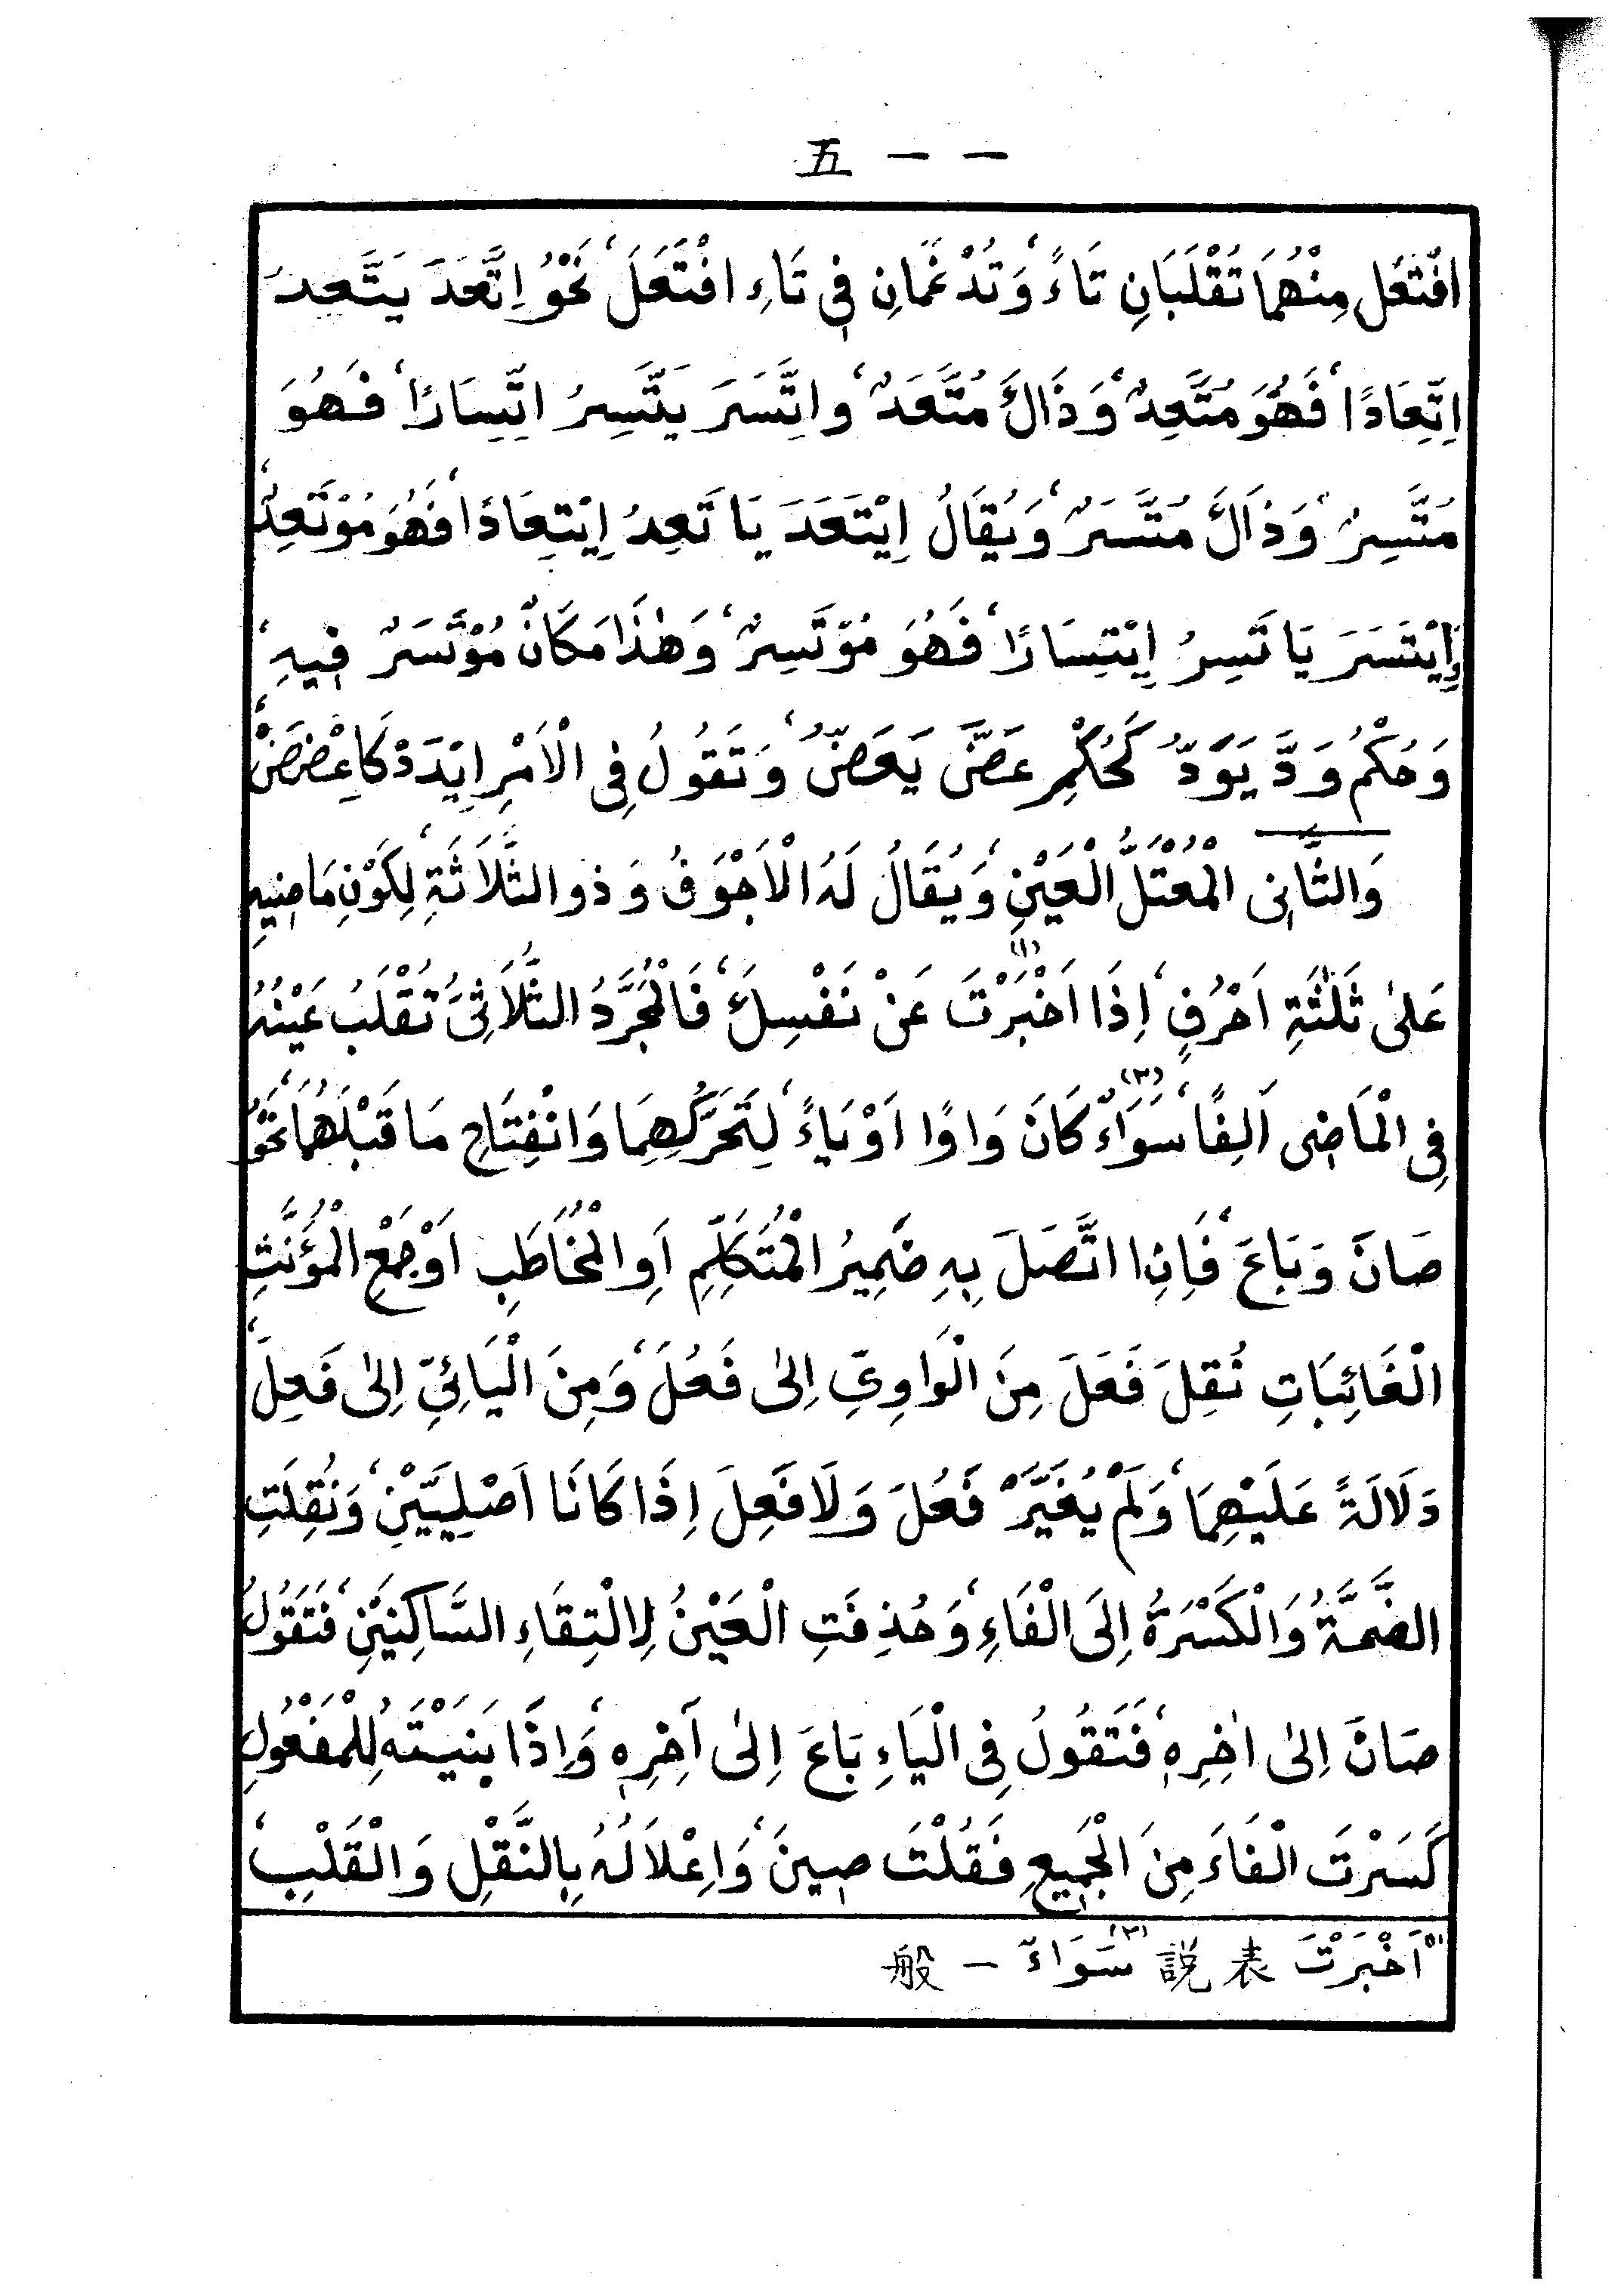 五 一 一
افْتَعَلَ مِنْهُمَا تُقْلَبَانِ تَاءً، وَتُدْغَمَانِ فِي تَاءِ افْتَعَلَ، نَحْوُ اِتَّعَدَ يَتَّعِدُ
اِتِّعَادًا، فَهُوَ مُتَّعِدٌ، وَذَاكَ مُتَّعَدٌ، وَاتَّسَرَ يَتَّسِرُ اتِّسَارًا، فَهُوَ
مُتَّسِرٌ، وَذَاكَ مُتَّسَرٌ، وَيُقَالُ اِيْتَعَدَ يَا تَعِدُ اِيْتِعَادًا، فَهُوَ مُوْتَعِدٌ،
وَاِيْتَسَرَ يَا تَسِرُ اِيْتِسَارًا، فَهُوَ مُوْتَسِرٌ، وَهٰذَا مَكَانٌ مُوْتَسَرٌ فِيهِ،
وَحُكْمُ وَدَّ يَوَدُّ كَحُكْمِ عَضَّ يَعَضُّ، وَتَقُولُ فِى الْاَمْرِ اِيْدَدْ كَاِعْضَضْ،
وَالثَّانِى الْمُعْتَلُّ الْعَيْنِ، وَيُقَالُ لَهُ الْاَجْوَفُ وَذو الثَّلَاثَةِ، لِكَوْنِ مَاضِيهِ
عَلىٰ ثَلٰثَةِ اَحْرُفٍ، اِذَا اَخْبَرْتَ (١) عَنْ نَفْسِكَ، فَالْمُجَرَّدُ الثَّلَاثِىُّ تُقْلَبُ عَيْنُهُ
فِى الْمَاضِى اَلِفًا، سَوَاءٌ (٢) كَانَ وَاوًا اَوْ يَاءً، لِتَحَرُّكِهِمَا وَانْفِتَاحِ مَا قَبْلَهُمَا، نَحْوُ
صَانَ وَبَاعَ، فَاِذَا اتَّصَلَ بِهِ ضَمِيرُ الْمُتَكَلِّمِ اَوِ الْمُخَاطَبِ اَوْ جَمْعِ الْمُؤَنَّثِ
الْغَائِبَاتِ نُقِلَ فَعَلَ مِنَ الْوَاوِىِّ اِلىٰ فَعُلَ، وَمِنَ الْيَائِىِّ اِلىٰ فَعِلَ،
دَلَالَةً عَلَيْهِمَا، وَلَمْ يُغَيَّرْ فَعُلَ وَلَا فَعِلَ اِذَا كَانَا اَصْلِيَّيْنِ، وَنُقِلَتِ
الضَّمَّةُ وَالْكَسْرَةُ اِلَى الْفَاءِ، وَحُذِفَتِ الْعَيْنُ لِالْتِقَاءِ السَّاكِنَيْنِ، فَتَقُولُ
صَانَ اِلىٰ اٰخِرِهِ، فَتَقُولُ فِى الْيَاءِ بَاعَ اِلىٰ آخِرِهِ، وَاِذَا بَنَيْتَهُ لِلْمَفْعُولِ
كَسَرْتَ الْفَاءَ مِنَ الْجَمِيعِ فَقُلْتَ صِينَ، وَاِعْلَالُهُ بِالنَّقْلِ وَالْقَلْبِ،
(١) اَخْبَرْتَ 表 説 (٢) سَوَاءٌ 一 般